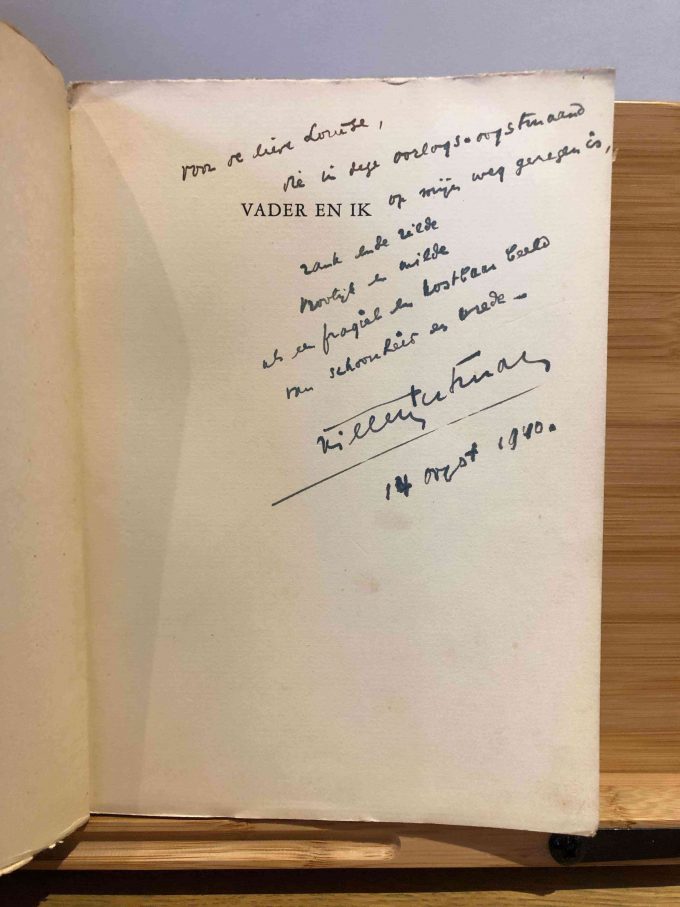 voor de lieve Louise,
die in deze oorlogs-oogstmaand
op mijn weg geregen is,
VADER EN IK
rank ende
en milde
als een fragiel en kostbaar beeld
van schoonheid en vrede -
Willem
14 oogst 1940.